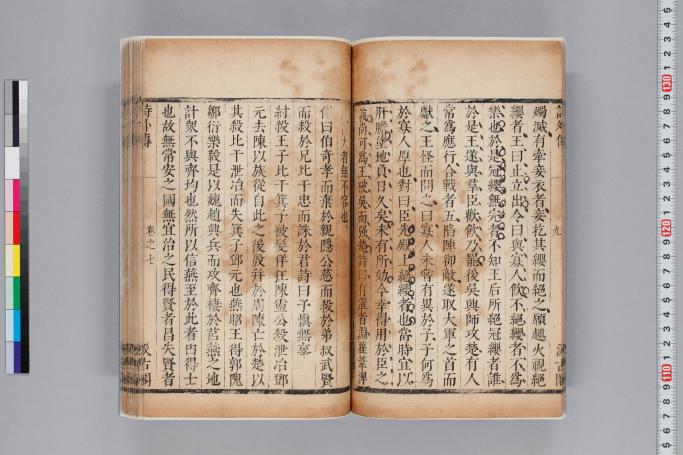 燭滅有牽妾衣者妾扢其纓而絕之願趣火視絕
纓者王曰止立出令曰與寡人飲不絕纓者不為
樂也於是冠纓無完者不知王后所絕冠纓者誰
於是王遂與群臣歡飲乃罷後吳興師攻楚有人
常為應行合戰者五陷陣卻敵遂取大軍之首而
獻之王怪而問之曰寡人未嘗有異於子子何為
於寡人厚也對曰臣先殿上絕纓者也當時宜以
肝膽塗地負日久矣未有所効今幸得用於臣之
義尚可為王破吳而强楚詩曰有漼者淵萑葦渒
渒言大者無不容也
傳曰伯奇孝而棄於親隱公慈而殺於弟叔武賢
而殺於兄比干忠而誅於君詩曰予慎無辜
紂殺王子比干箕子被髮佯狂陳靈公殺泄冶鄧
元去陳以族從自此之後殷并於周陳亡於楚以
其殺比干泄冶而失箕子鄧元也燕昭王得郭隗
鄒衍樂毅是以魏趙興兵而攻齊棲於莒燕之地
計衆不與齊均也然所以信燕至於此者由得士
也故無常安之國無宜治之民得賢者昌失賢者
詩外傳
卷之七
汲古閣